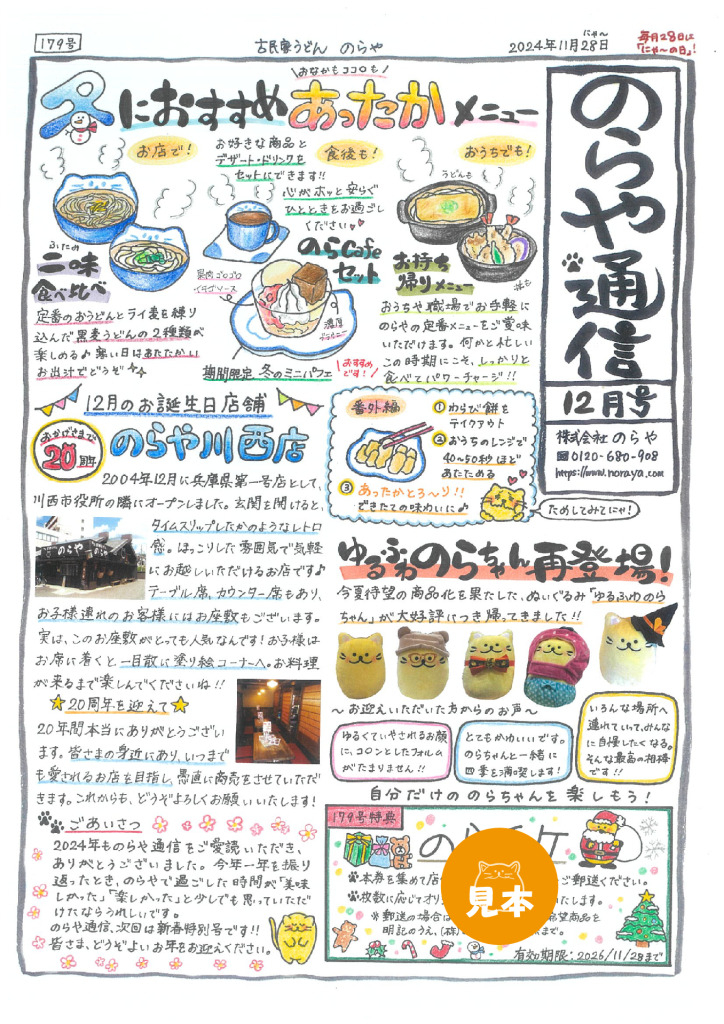 179号
古民家うどん のらや
2024年11月28日
にゃ〜
毎月28日は
「にゃ〜の日」!
のらや通信
12月号
株式会社 のらや
0120-680-908
https://www.noraya.com
\おなかもココロも/
冬におすすめあったかメニュー
お店で!
ふたあじ
二味
食べ比べ
定番のおうどんとライ麦を練り
込んだ黒麦うどんの2種類が
楽しめる♪寒い日はあたたかい
お出汁でどうぞ
お好きな商品と
デザート・ドリンクを
セットにできます!!
食後も!
心がホッと安らぐ
ひとときをお過ごし
ください
のらCafe
セット
果肉ゴロゴロ
イチゴソース
濃厚
ブラウニー
期間限定 冬のミニパフェ
\おすすめ
です!/
おうちでも!
うどんも
丼も
お持ち
帰りメニュー
おうちや職場でお手軽に
のらやの定番メニューをご賞味
いただけます。何かと忙しい
この時期にこそ、しっかりと
食べてパワーチャージ!!
番外編
①わらび餅を
テイクアウト
②おうちのレンジで
40〜50秒ほど
あたためる
③あったかとろ〜り!!
できたての味わいに♪
ためしてみてにゃ!
12月のお誕生日店舗
おかげさまで
20周年
のらや川西店
2004年12月に兵庫県第一号店として、
川西市役所の隣にオープンしました。玄関を開けると、
タイムスリップしたかのようなレトロ
感。ほっこりした雰囲気で気軽
にお越しいただけるお店です♪
テーブル席、カウンター席もあり、
お子様連れのお客様にはお座敷もございます。
実は、このお座敷がとっても人気なんです!お子様は
お席に着くと一目散に塗り絵コーナーへ。お料理
が来るまで楽しんでくださいね!!
☆20周年を迎えて☆
20年間本当にありがとうござい
ます。皆さまの身近にあり、いつまで
も愛されるお店を目指し、愚直に商売をさせていただ
きます。これからも、どうぞよろしくお願いいたします!
ゆるふわのらちゃん再登場!
今夏待望の商品化を果たした、ぬいぐるみ「ゆるふわのら
ちゃん」が大好評につき帰ってきました!!
〜お迎えいただいた方からのお声〜
ゆるくていやされるお顔
に、コロンとしたフォルム
がたまりません!!
とてもかわいいです。
のらちゃんと一緒に
四季を満喫します!
いろんな場所へ
連れていって、みんな
に自慢したくなる。
そんな最高の相棒
です!!
自分だけののらちゃんを楽しもう!
ごあいさつ
2024年ものらや通信をご愛読いただき、
ありがとうございました。今年一年を振り
返ったとき、のらやで過ごした時間が「美味
しかった」「楽しかった」と少しでも思っていただ
けたならうれしいです。
のらや通信、次回は新春特別号です!!
皆さま、どうぞよいお年をお迎えください。
179号特典
のらチケ
見本
本券を集めて店
ご郵送ください。
枚数に応じてオリ
たします。
※郵送の場合は
希望商品を
明記のうえ、(株)
まで。
有効期限:2025/11/28まで